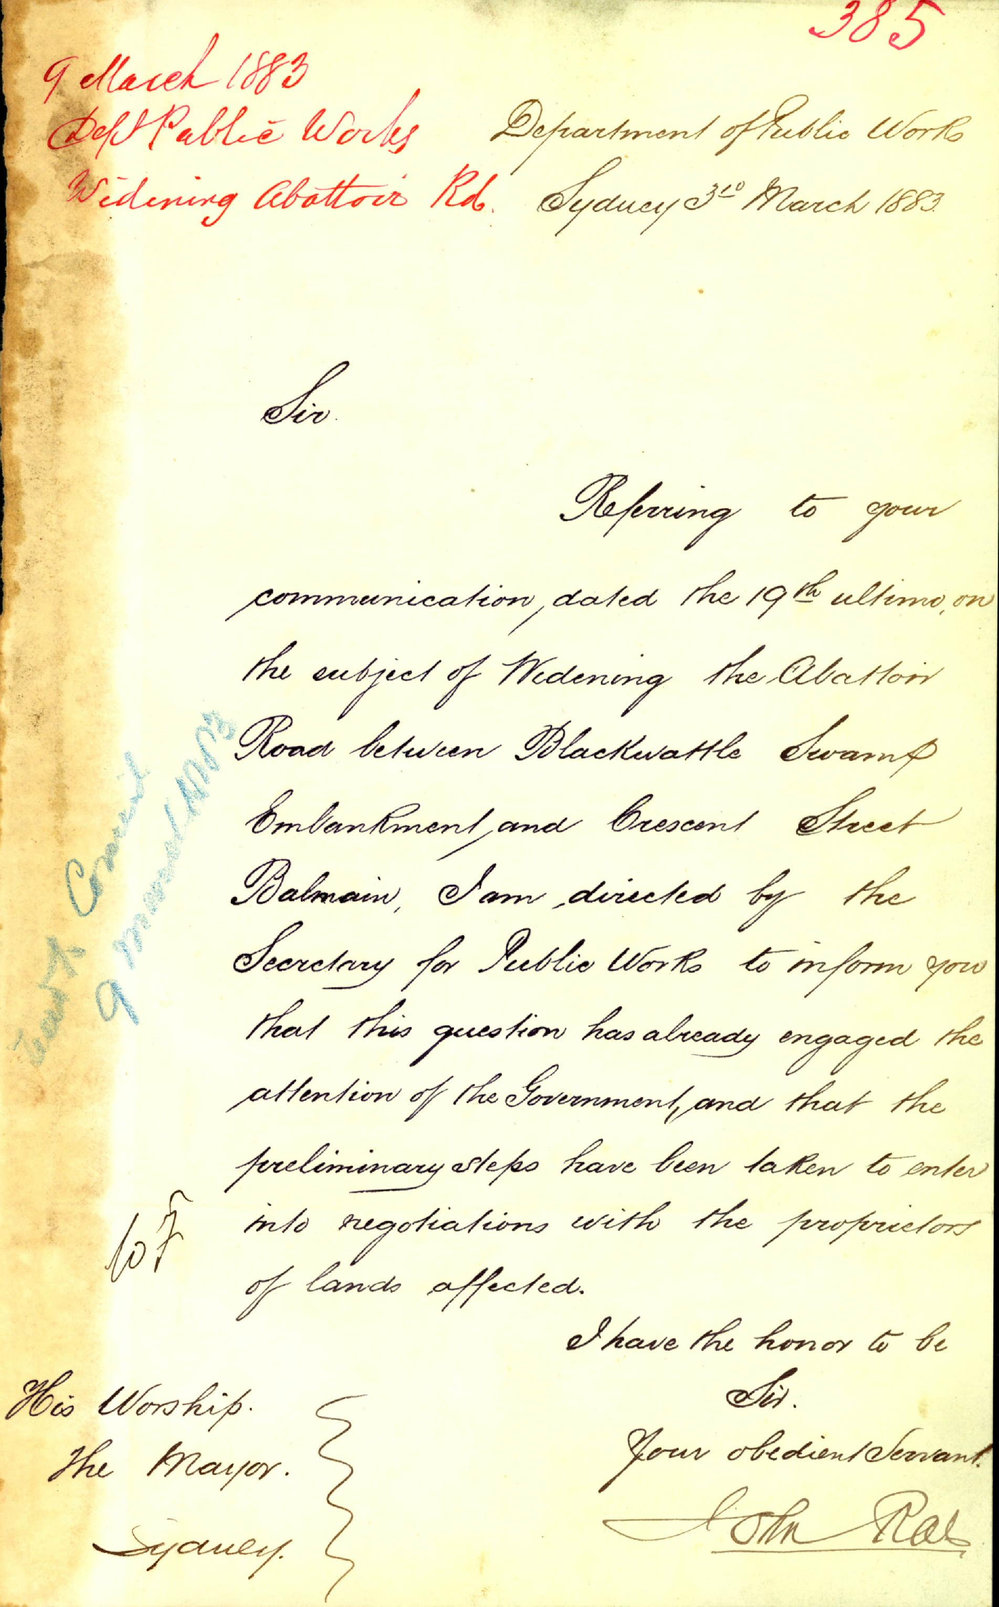 385
9 March 1883
Dept Public Works
Widening Abattoir Rd.
Department of Public Works
Sydney 3rd March 1883
Sir.
Referring to your
communication, dated the 19th ultimo, on
the subject of Widening the Abattoir
Road between Blackwattle Swamp
Embankment, and Crescent Street
Balmain, I am, directed by the
Secretary for Public Works to inform you
that this question has already engaged the
attention of the Government, and that the
preliminary steps have been taken to enter
into negotiations with the proprietors
of lands affected.
I have the honor to be
Sir.
Your obedient Servant.
John Rae
His Worship.
The Mayor.
Sydney.
9 March 1883